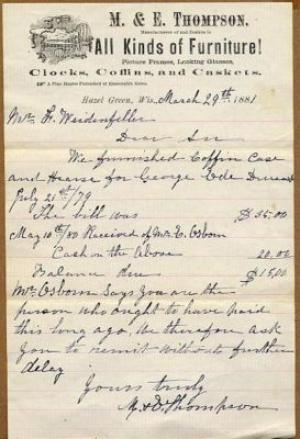 M. & E. THOMPSON,
Manufacturers of and Dealers in
All Kinds of Furniture!
Picture Frames, Looking Glasses,
Clocks, Coffins, and Caskets.
A Fine Hearse Furnished at Reasonable Rates.
Hazel Green, Wis., March 29th 1881
Mr. F. Weidenfeller
Dear Sir
We furnished Coffin Case
and Hearse for George Ede Dunead
July 21st/79
The bill was $35.00
May 10th/80 Received of Mr E. Osborn
Cash on the Above 20.00
Balance due $15.00
Mr Osborn Says You are the
person who ought to have paid
this long ago. We therefore ask
You to remit without further
delay
Yours truly
M. & E. Thompson